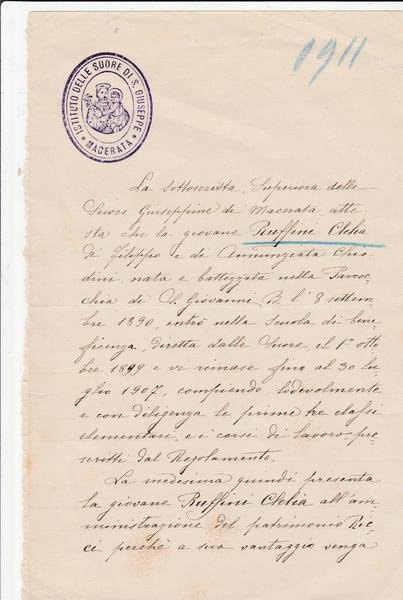 1911
ISTITUTO DELLE SUORE DI S. GIUSEPPE
* MACERATA *
La sottoscritta, Superiora delle
Suore Giuseppine di Macerata, atte
sta che la giovane Ruffini Clelia
di Filippo e di Annunziata Chio
dini nata e battezzata nella Parroc
chia di S. Giovanni B. l'8 settem
bre 1890, entrò nella Scuola di bene
ficenza, diretta dalle Suore, il 1º otto
bre 1899 e vi rimase fino al 30 lu
glio 1907, compiendo lodevolmente
e con diligenza le prime tre classi
elementari, e i corsi di lavoro pre
scritti dal Regolamento.
La medesima quindi presenta
la giovane Ruffini Clelia all'am
ministrazione del patrimonio Ric
ci perchè a suo vantaggio venga